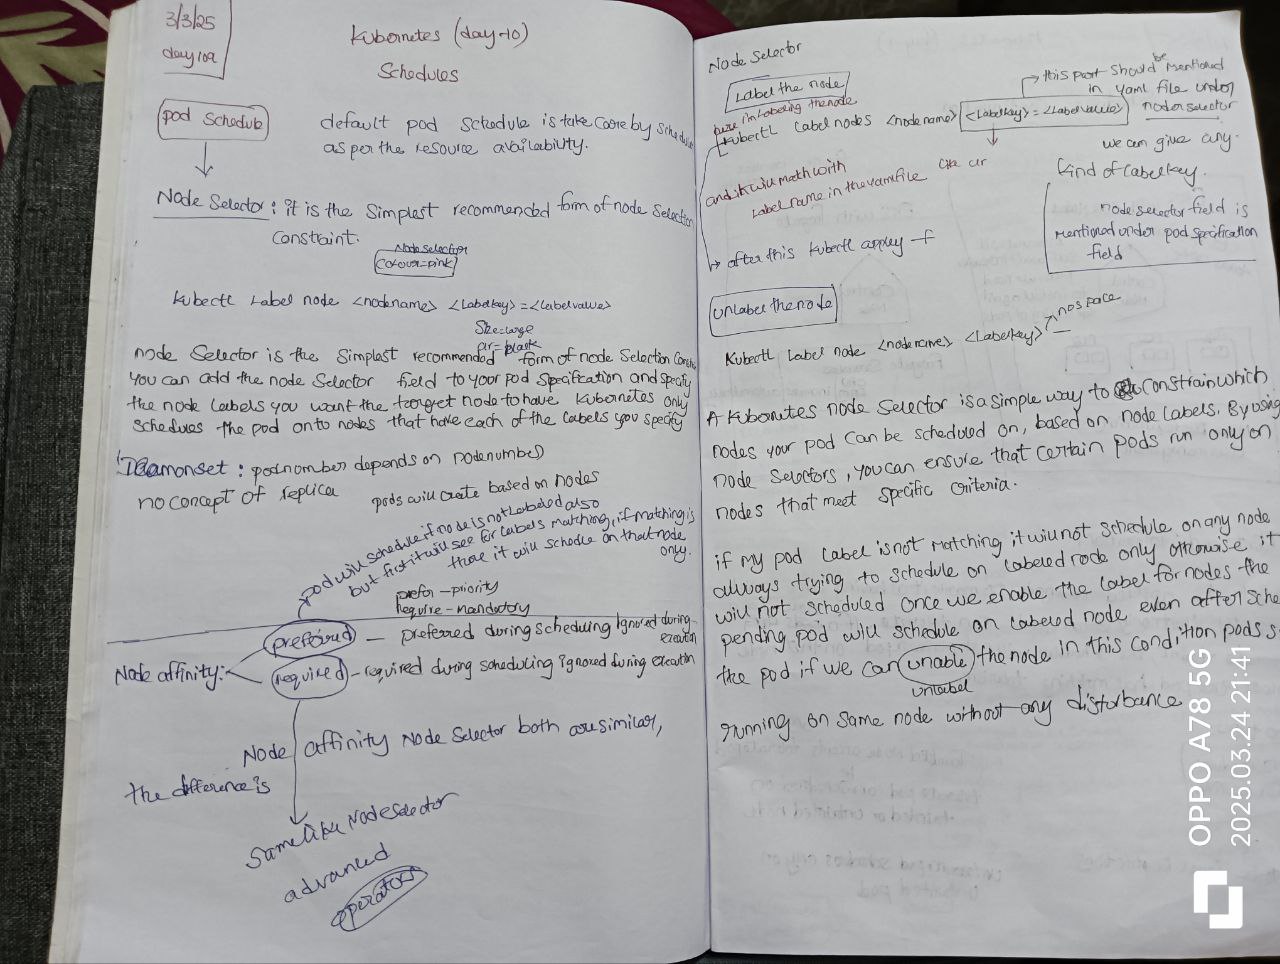 3/3/25
day 109
Kubernetes (day-10)
Schedules
pod schedule
default pod schedule is take care by
as per the resource availability.
Node Selector: it is the simplest recommended form of node selection
constraint.
Node selector
colour=pink
kubectl Label node <nodename> <Labelkey>=<Labelvalue>
Size=large
node Selector is the simplest recommended form of node selection
you can add the node selector field to your pod specification and specify
the node labels you want the target node to have Kubernetes only
schedules the pod onto nodes that have each of the labels you specify
Daemonset: pod number depends on node number
no concept of replica
pods will create based on nodes
pod will schedule if node is not labeled also
but first it will see for labels matching, if matching is
there it will schedule on that node
only.
prefer - priority
require - mandatory
preferred - preferred during scheduling ignored during-
execution
Node affinity:
required - required during scheduling ignored during execution
Node affinity Node selector both are similar,
the difference is
Same like Node selector
advanced
operators
Node selector
Label the node
in Labeling the node
kubectl Label nodes <node name> <Labelkey>=<Labelvalue>
this part should be mentioned
in yaml file under
node selector
we can give any
kind of Label key.
and it will math with
Label name in the yaml file
node selector field is
mentioned under pod specification
field
after this kubectl appley -f
Unlabel the node
Kubectl Label node <node name> <Labelkey>-
no space
A Kubernetes node selector is a simple way to constrain which
nodes your pod can be scheduled on, based on node labels. By using
node selectors, you can ensure that certain pods run only on
nodes that meet specific criteria.
if my pod label is not matching it will not schedule on any node
always trying to schedule on labeled node only otherwise it
will not scheduled once we enable the label for nodes the
pending pod will schedule on labeled node even after
the pod if we can unable the node in this condition pods
unlabel
running on same node without any disturbance
OPPO A78 5G
2025.03.24 21:41